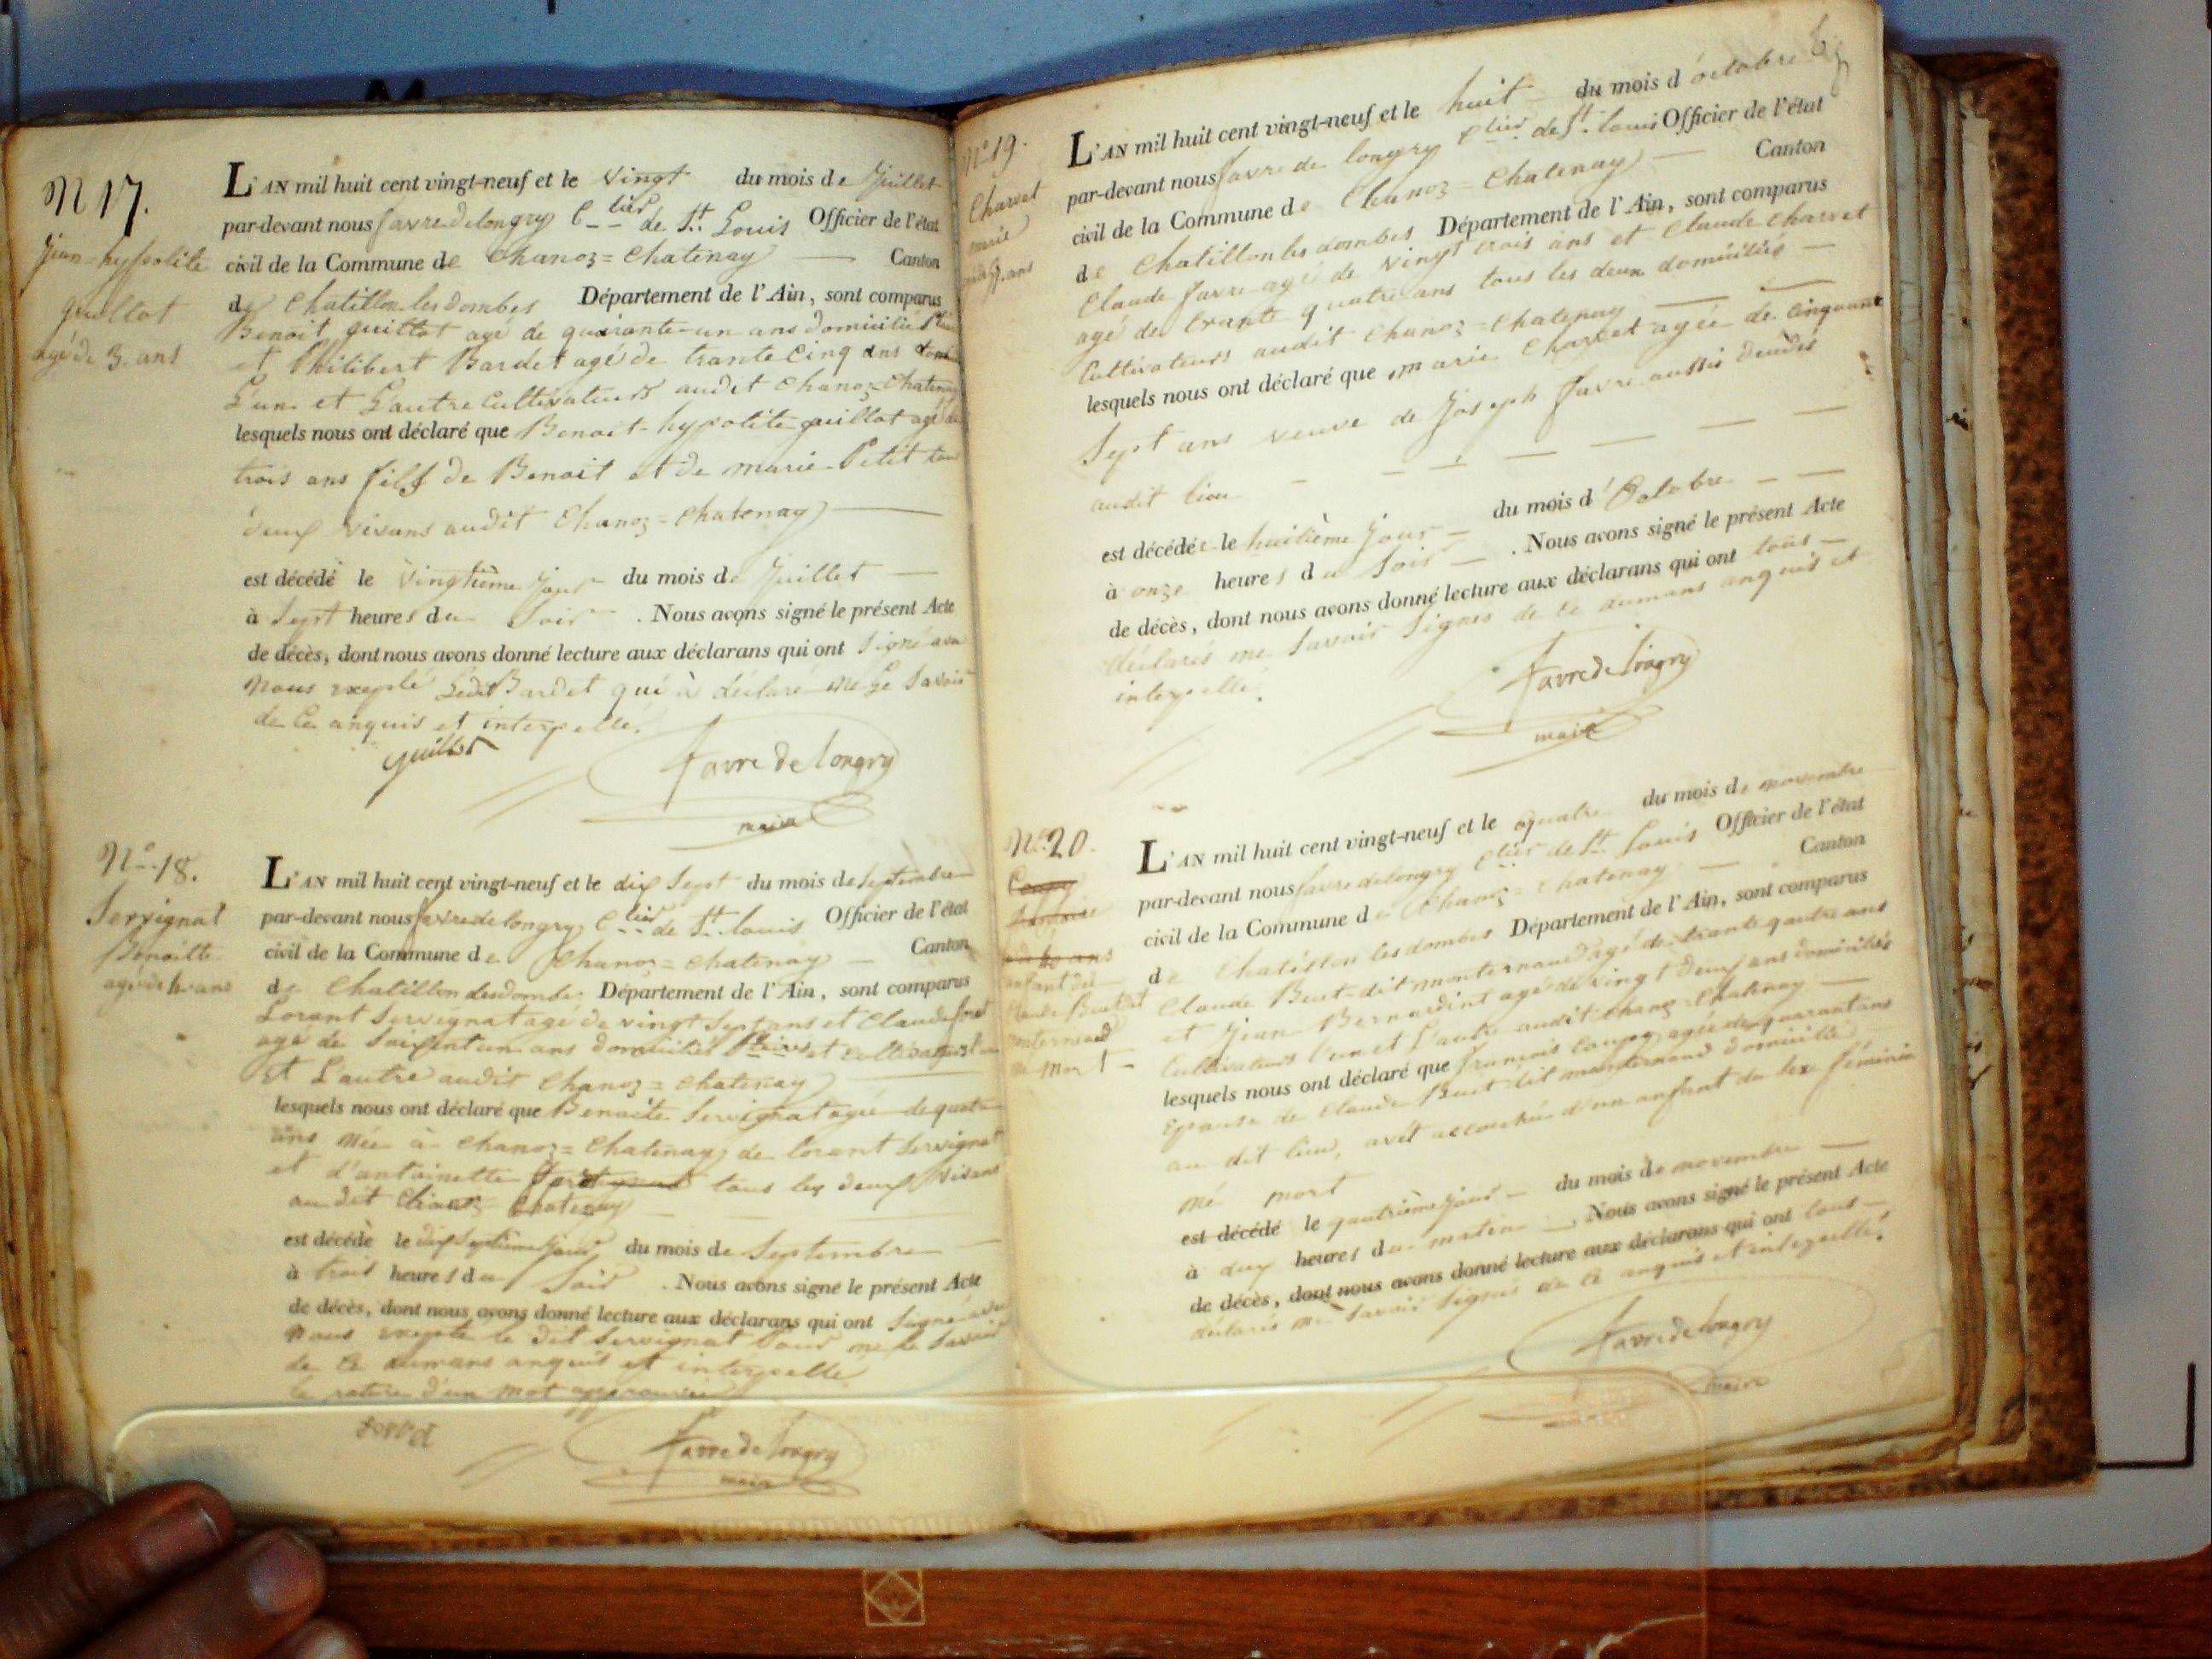 N 17.
Jean=hyppolite
guillot
agé de 3. ans
L'AN mil huit cent vingt-neuf et le vingt du mois de Juillet
par-devant nous favre de longry C--lier de St. Louis Officier de l'état
civil de la Commune de Chanoz=Chatenay — Canton
de Chatillon les dombes Département de l'Ain, sont comparus
Benoit guillot agé de quarante-un ans domicilié
et Philibert Bardet agé de trante Cinq ans
L'un et L'autre Cultivateurs audit Chanoz=Chatenay
lesquels nous ont déclaré que Benoit-hypolite guillot agé de
trois ans fils de Benoit et de marie Petit tou
deux vivans audit Chanoz=Chatenay —
est décédé le vingtième jour du mois de Juillet —
à Sept heures du Soir . Nous avons signé le présent Acte
de décès, dont nous avons donné lecture aux déclarans qui ont Signé avec
Nousexepté Ledit Bardet qui à déclaré ne Le Savoir
de Ce anquis et interpellé.
guillot
favre de longry
maire
N°-18.
Servignat
Benoitte
agé de 4. ans
L'AN mil huit cent vingt-neuf et le dix Sept du mois de Septembre
par-devant nous favre de longry C--lier de St. Louis Officier de l'état
civil de la Commune de Chanoz=Chatenay — Canton
de Chatillon les dombe Département de l'Ain, sont comparus
Lorant Servignat agé de vingt Sept ans et Claude
agé de Soixent un ans domiciliés et cultivateurs
et L'autre audit Chanoz=Chatenay
lesquels nous ont déclaré que Benoite Servignat agée de quatre
ans Née à Chanoz=Chatenay de Lorant Servignat
et d'antoinette tous les deux vivans
au dit Chanoz=Chatenay
est décédé le dix Septième jour du mois de Septembre —
à trois heures du Soir . Nous avons signé le présent Acte
de décès, dont nous avons donné lecture aux déclarans qui ont Signé avec
Nous exepté le dit Servignat pour ne le Savoir
de Ce dumans anquis et interpellé
la rature d'un mot approuvée
favre de longry
maire
N° 19.
Charvet
marie
L'AN mil huit cent vingt-neuf et le huit — du mois d'octobre
par-devant nous favre de longry C--lier de St. Louis Officier de l'état
civil de la Commune de Chanoz=Chatenay — Canton
de Chatillon les dombes Département de l'Ain, sont comparus
Claude favre agé de vingt trois ans et Claude Charvet
agé de trante quatre ans tous les deux domiciliés —
Cultivateurs audit Chanoz=Chatenay —
lesquels nous ont déclaré que marie Charvet agée de Cinquante
Sept ans veuve de Joseph favre aussis
audit lieu — — —
est décédée le huitième Jour — du mois d'Octobre — —
à onze heures du Soir — . Nous avons signé le présent Acte
de décès, dont nous avons donné lecture aux déclarans qui ont tous —
déclarés ne Savoir Signes de Ce dumans anquis et
interpellé.
favre de longry
maire
N° 20.
enfant de
Claude Buet dit
monternaud
né mort —
L'AN mil huit cent vingt-neuf et le quatre du mois de novembre
par-devant nous favre de longry C--lier de St. Louis Officier de l'état
civil de la Commune de Chanoz=Chatenay — Canton
de Chatillon les dombes Département de l'Ain, sont comparus
Claude Buet-dit monternaud agé de trante quatre ans
et Jean Bernardint agé de vingt deux ans domiciliés
Cultivateurs l'un et L'autre audit Chanoz=Chatenay —
lesquels nous ont déclaré que françois agée de quarant ans
Epouse de Claude Buet dit monternaud domicilié
au dit lieu, avet accouchée d'un anfant du sexe féminin
né mort
est décédé le quatrième jour — du mois de novembre —
à deux heures du matin — Nous avons signé le présent Acte
de décès, dont nous avons donné lecture aux déclarans qui ont tout —
déclarés ne Savoir Signés de Ce anquis et interpellé.
favre de longry
maire